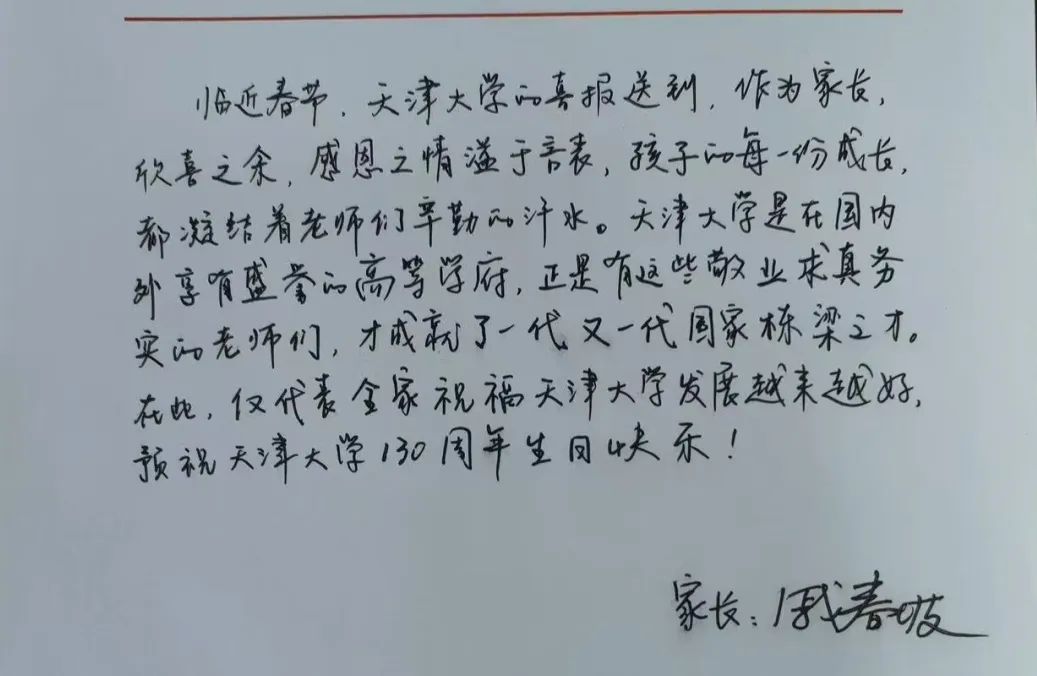 临近春节，天津大学的喜报送到，作为家长，
欣喜之余，感恩之情溢于言表，孩子的每一份成长，
都凝结着老师们辛勤的汗水。天津大学是在国内
外享有盛誉的高等学府，正是有这些敬业求真务
实的老师们，才成就了一代又一代国家栋梁之才。
在此，仅代表全家祝福天津大学发展越来越好，
预祝天津大学130周年生日快乐！
家长：春